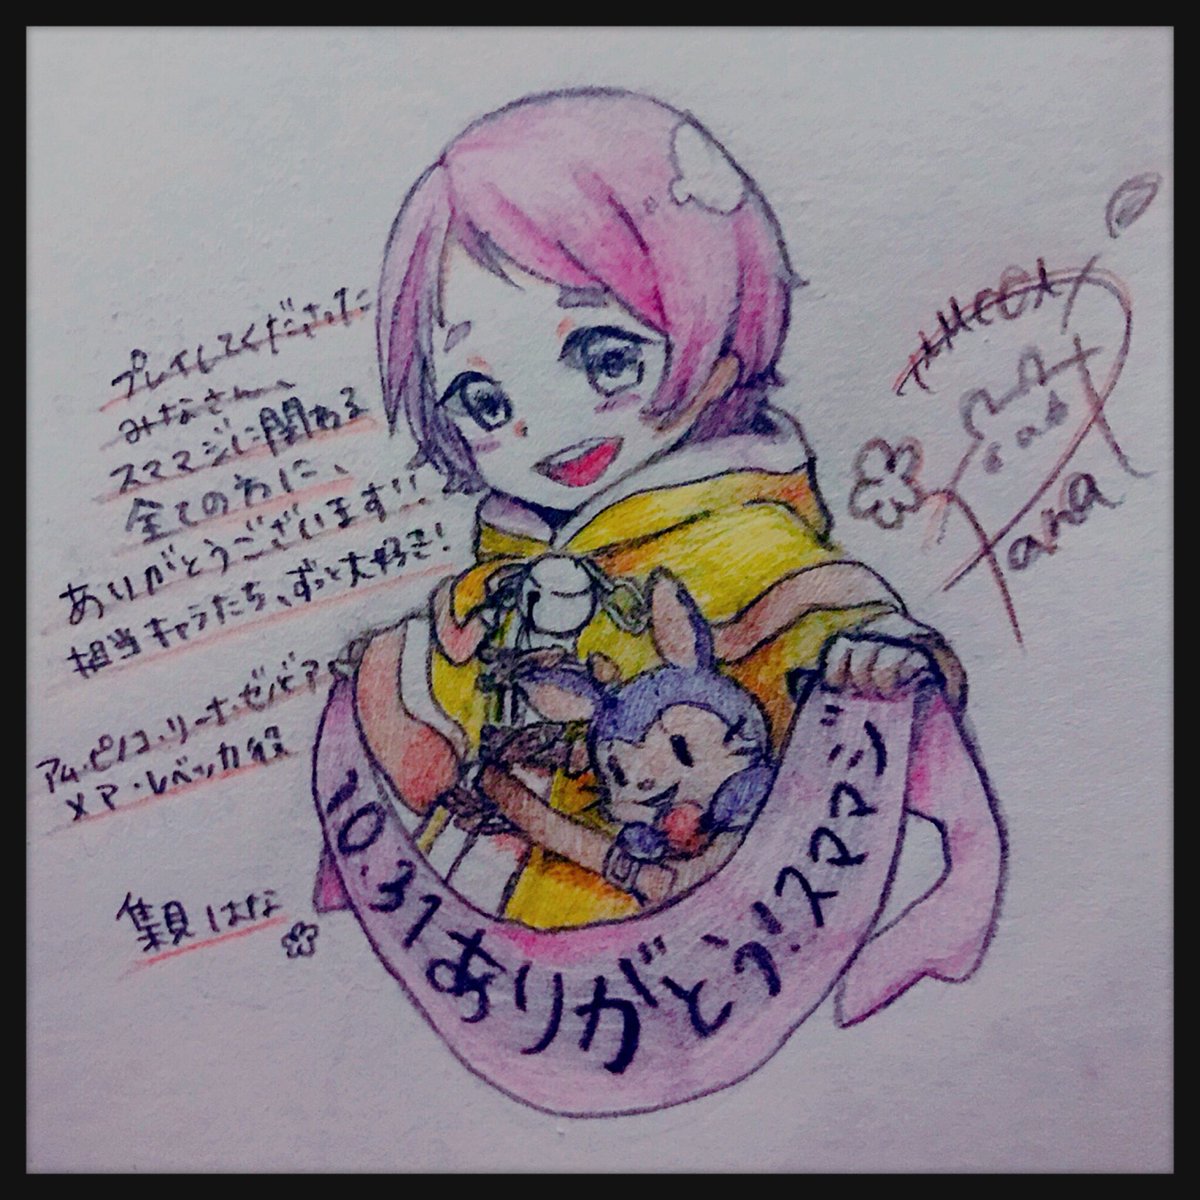 プレイしてくださった
みなさん、
スママジに関わる
全ての方に、
ありがとうございます!!
担当キャラたち、ずっと大好き!
アム・ピノコ・リーナ・ゼノビア
メア・レベッカ役
集貝はな
10.31ありがとう!スママジ